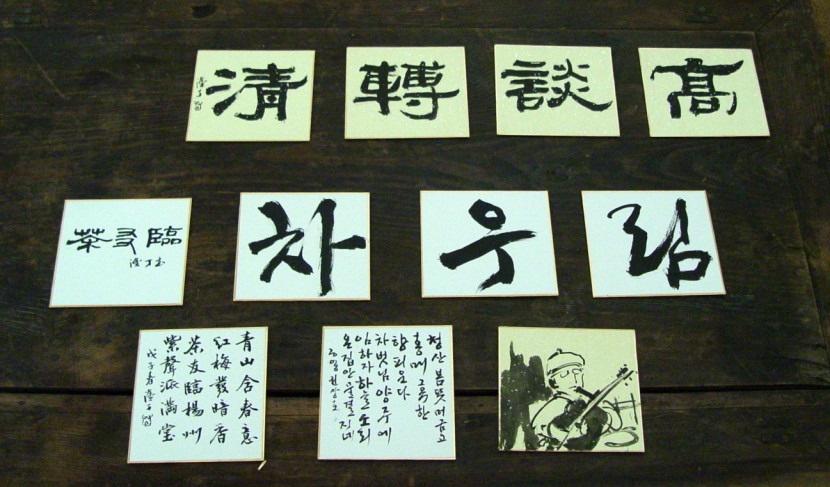 高談轉清
茶友臨
차우림
青山含春意
紅梅發暗香
茶友臨楊州
紫聲派滿堂
戊子春
청산 봄뜻 머금고
홍매 그윽한
향 피운다
차벗님 양주에
임하자 하늘 소리
온 집안 물결지네